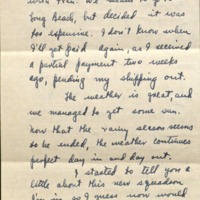 Long Beach, but decided it was
too expensive. I don't know when
I'll get paid again, as I received
a partial payment two weeks
ago, pending my shipping out.
The weather is great, and
we managed to get some in.
now that the rainy season seems
to be ended, the weather continues
perfect day in and day out.
I started to tell you a
little about this new squadron
so I guess now would